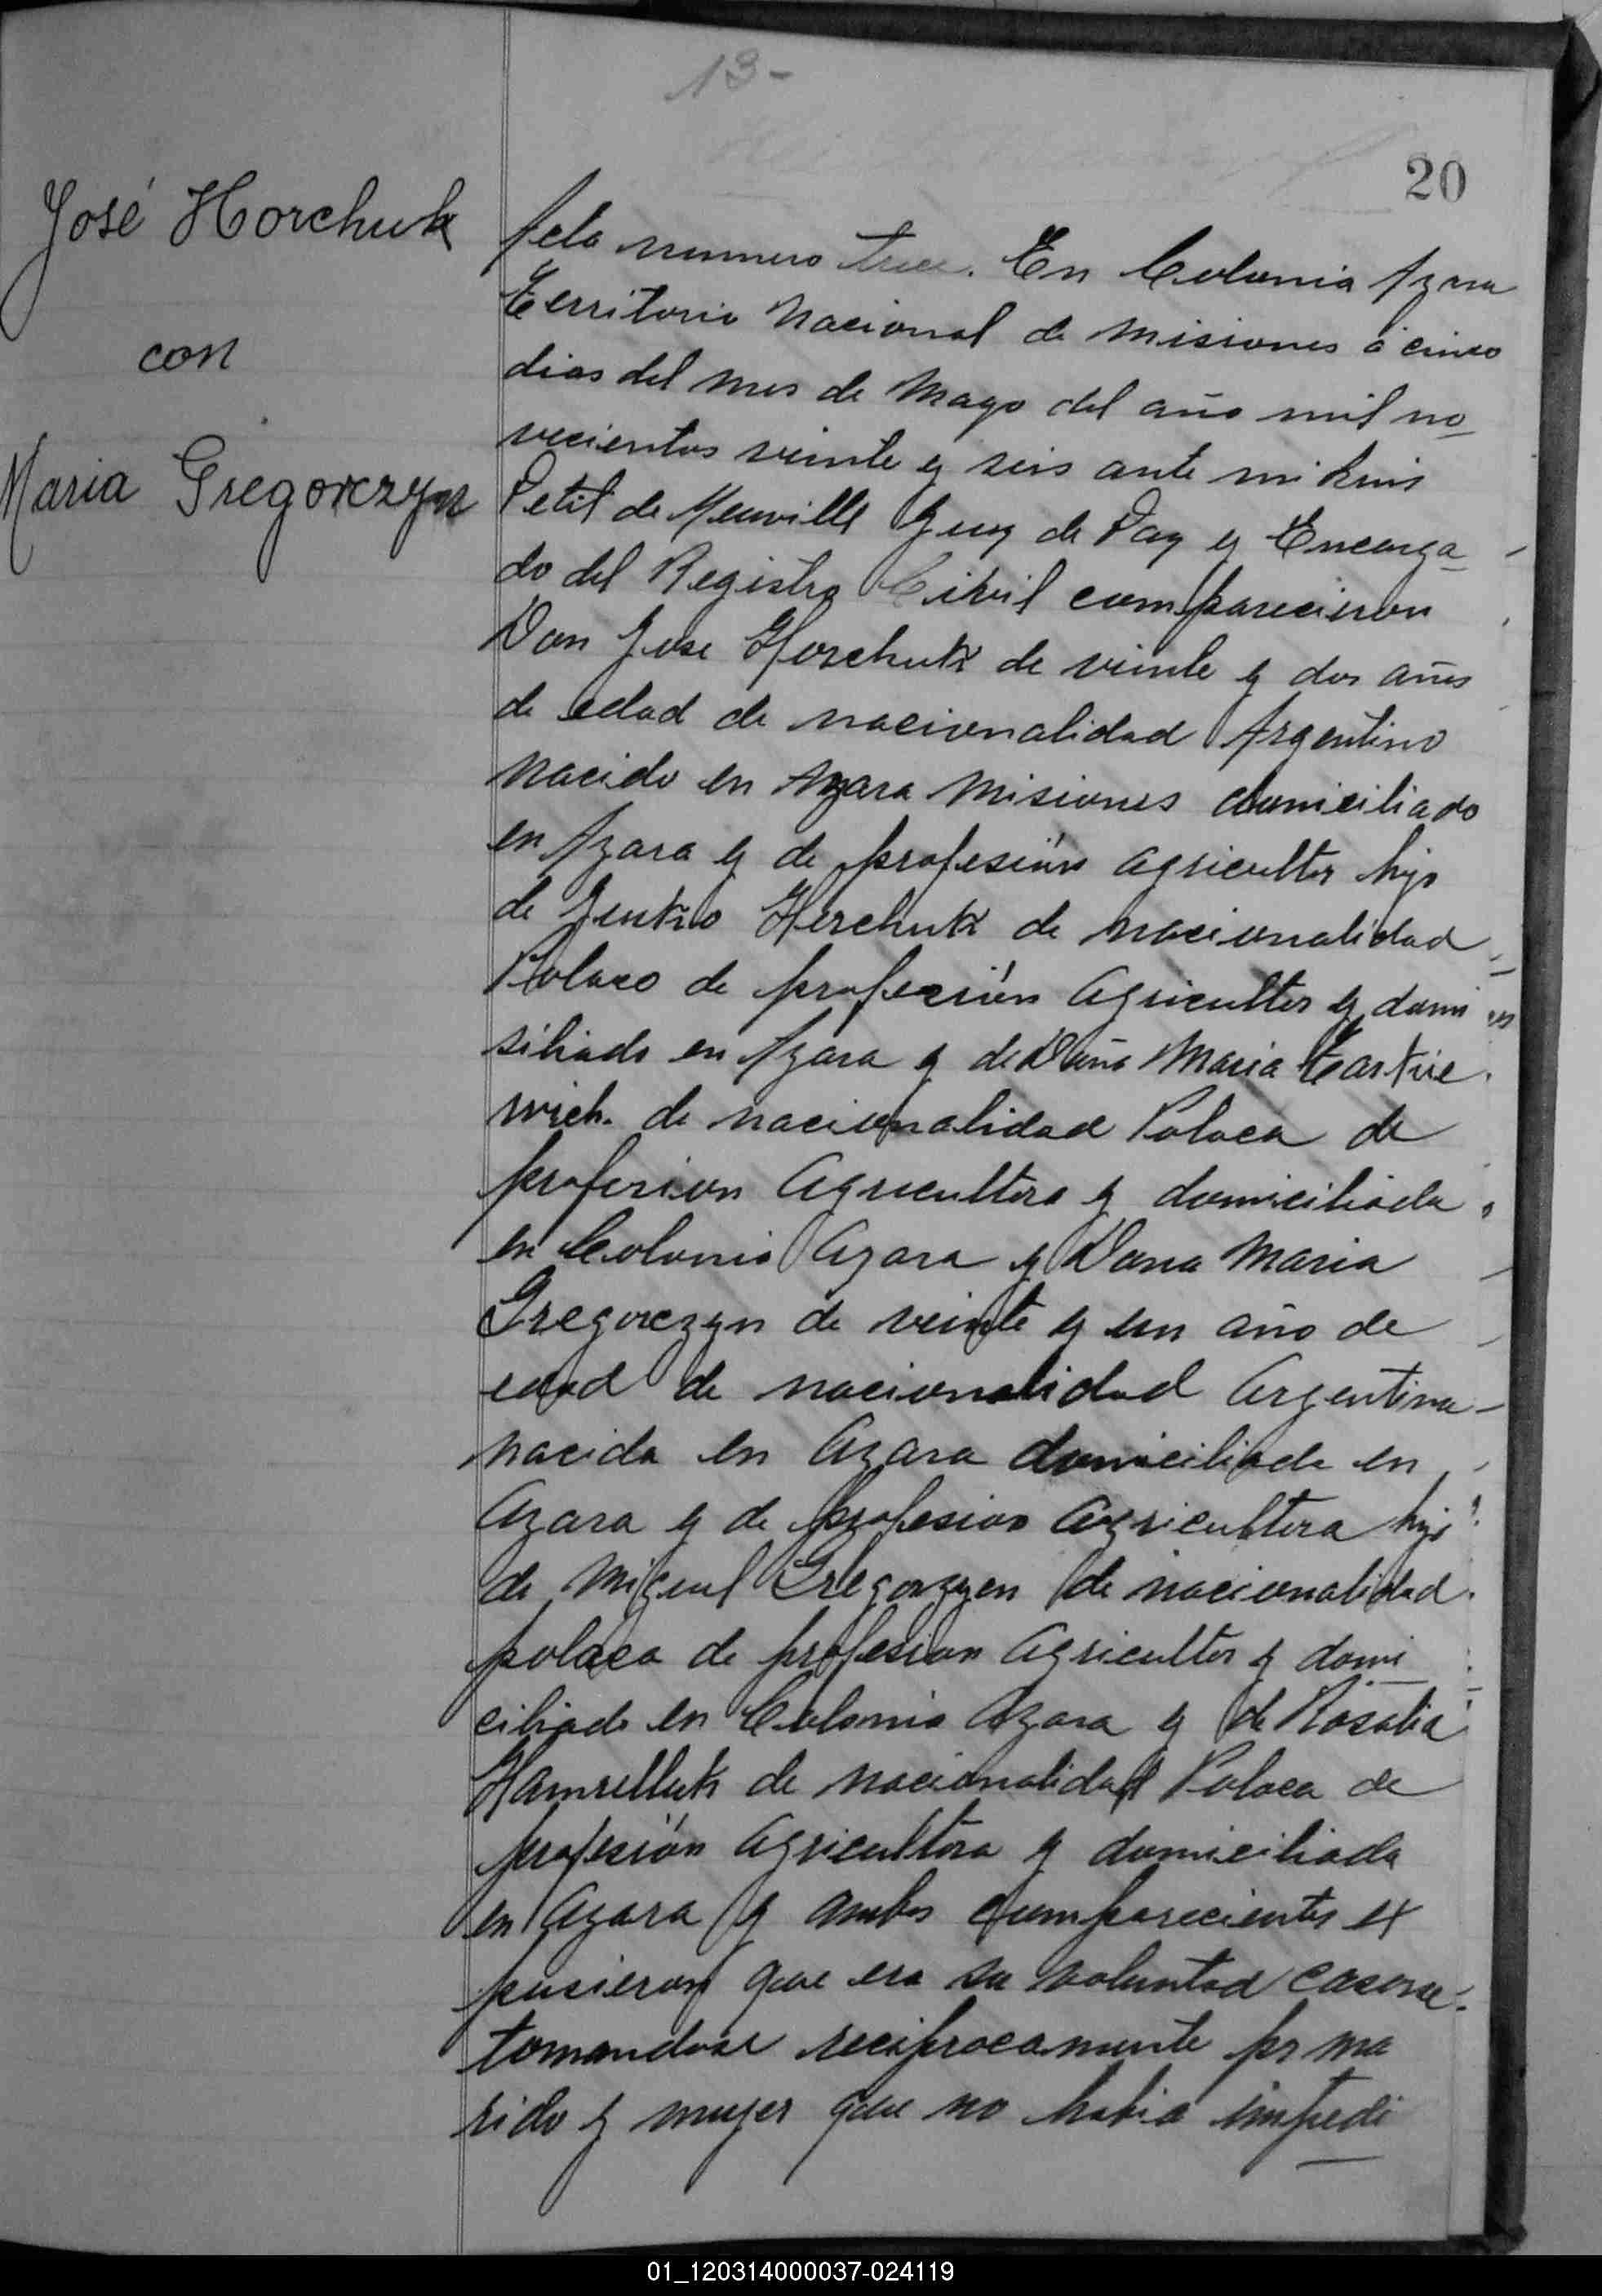 13-
20
José Horchuk
con
Maria Gregorczyn
Acta numero trece. En Colonia Azara
Territorio Nacional de Misiones á cinco
dias del mes de Mayo del año mil no
vecientos veinte y seis ante mi Luis
Petit de Meuville Juez de Paz y Encarga
do del Registro Civil comparecieron
Don Jose Horchuk de veinte y dos años
de edad de nacionalidad Argentino
nacido en Azara Misiones domiciliado
en Azara y de profesión agricultor hijo
de Horchuk de nacionalidad
Polaco de profesión agricultor y domi
siliado en Azara y de Doña Maria
de nacionalidad Polaca de
profesion agricultora y domiciliada
en Colonia Azara y Dona Maria
Gregorczyn de veinte y un año de
edad de nacionalidad Argentina
nacida en Azara domiciliada en
Azara y de profesion agricultora hija
de Miguel Gregorzyen de nacionalidad
polaca de profesion agricultor y domi
ciliado en Colonia Azara y de Rosalia
de nacionalidad Polaca de
profesión agricultora y domiciliada
en Azara y ambos comparecientes ex
pusieron que era su voluntad casarse
tomandose reciprocamente por ma
rido y mujer que no habia impedi
01_120314000037-024119